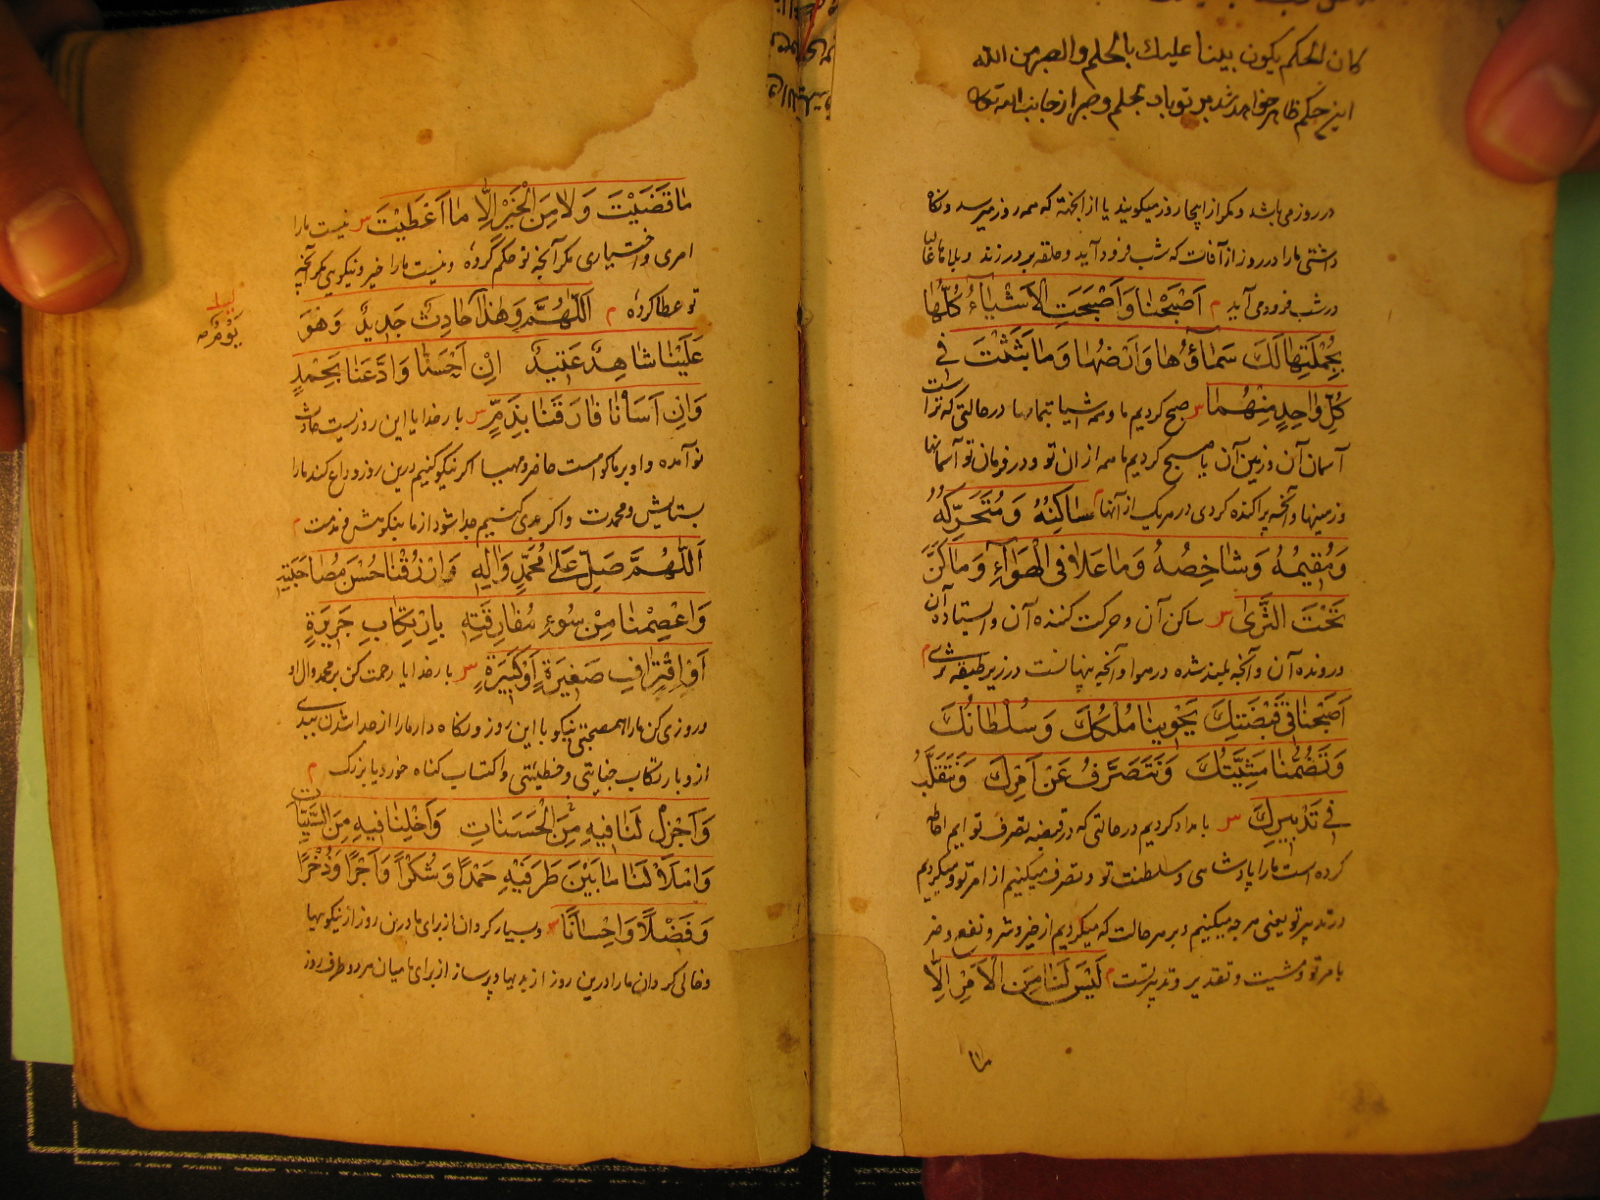 كان الحكم يكون بيننا عليك بالحلم والصبر من الله
اين حكم ظاهر خواهد شد بر تو باد بحلم وصبر از جانب الله تعالى
در روز می باشد و مكر از اینجا روز میكویند یا از انجهة كه همه روز میرسد و نكاه
داشتی ما را در روز از آفات كه شب فرود آید و حلقه بر در زند و بلاها غالبا
در شب فرود می آید م اَصْبَحْنا وَاَصْبَحَتِ الْاَشْیَاءُ كُلُّهَا
بِجُمْلَتِهَا لَكَ سَمَاؤُهَا وَاَرْضُهَا وَمَا بَثَثْتَ فِي
كُلِّ وَاحِدٍ مِنْهُمَا س صبح كردیم ما و همه اشیا بتمامها در حالتی كه تراست
آسمان آن و زمین آن یا صبح كردیم ما همه از ان تو و در فرمان تو آسمانها
و زمینها و آنچه پراكنده كردی در هر یك از آنها م سَاكِنُهُ وَمُتَحَرِّكُهُ
وَمُقِیمُهُ وَشَاخِصُهُ وَمَا عَلَا فِی الْهَوَاءِ وَمَا كَنَّ
تَحْتَ الثَّرٰی س ساكن آن و حركت كننده آن و ایستاده آن
و رونده آن و آنچه بلند شده در هوا و آنچه پنهانست در زیر طبقه ثری م
اَصْبَحْنَا فِي قَبْضَتِكَ یَحْوِینَا مُلْكُكَ وَسُلْطَانُكَ
وَتَضُمُّنَا مَشِیَّتُكَ وَنَتَصَرَّفُ عَنْ اَمْرِكَ وَنَتَقَلَّبُ
فِي تَدْبِیرِكَ س بامداد كردیم در حالتی كه در قبضه تصرف تو ایم احاطه
كرده است ما را پادشاهی و سلطنت تو و تصرف میكنیم از امر تو و میكردیم
در تدبیر تو یعنی هر چه میكنیم و بر هر حالت كه میكردیم از خیر و شر و نفع و ضر
بامر تو و مشیت و تقدیر و تدبیر تست م لَیْسَ لَنَا مِنَ الْاَمْرِ اِلَّا
ما
مَا قَضَیْتَ وَلَا مِنَ الْخَیْرِ اِلَّا مَا اَعْطَیْتَ س نیست ما را
امری و اختیاری مكر آنچه تو حكم كرده و نیست ما را خیر و نیكویی مكر آنچه
تو عطا كرده م اَللّٰهُمَّ وَهٰذَا حَادِثٌ جَدِیدٌ وَهُوَ
یَوْمٌ
عَلَیْنَا شَاهِدٌ عَتِیدٌ اِنْ اَحْسَنَّا وَدَّعَنَا بِحَمْدٍ
وَاِنْ اَسَأْنَا فَارَقَنَا بِذَمٍّ س بار خدایا این روزیست حادث
نو آمده و او بر ما كواهست حاضر و مهیا اكر نیكو كنیم درین روز وداع كند ما را
بستایش و محمدت و اكر بدی كنیم جدا شود از ما بنكوهش و مذمت م
اَللّٰهُمَّ صَلِّ عَلٰی مُحَمَّدٍ وَاٰلِهِ وَارْزُقْنَا حُسْنَ مُصَاحَبَتِهِ
وَاعْصِمْنَا مِنْ سُوءِ مُفَارَقَتِهِ بِارْتِكَابِ جَرِیرَةٍ
اَوِ اقْتِرَافِ صَغِیرَةٍ اَوْ كَبِیرَةٍ س بار خدایا رحمت كن بر محمد و ال او
و روزی كن ما را هم صحبتی نیكو با این روز و نكاه دار ما را از جدا شدن ببدی
از و بارتكاب جنایتی و خطیئتی و اكتساب كناه خورد یا بزرك م
وَاَجْزِلْ لَنَا فِیهِ مِنَ الْحَسَنَاتِ وَاَخْلِنَا فِیهِ مِنَ السَّیِّئَاتِ
وَامْلَأْ لَنَا مَا بَیْنَ طَرَفَیْهِ حَمْدًا وَشُكْرًا وَاَجْرًا وَذُخْرًا
وَفَضْلًا وَاِحْسَانًا س و بسیار كردان از برای ما درین روز از نیكویها
و خالی كردان ما را درین روز از بدیها و پر ساز از برای ما میان هر دو طرف روز